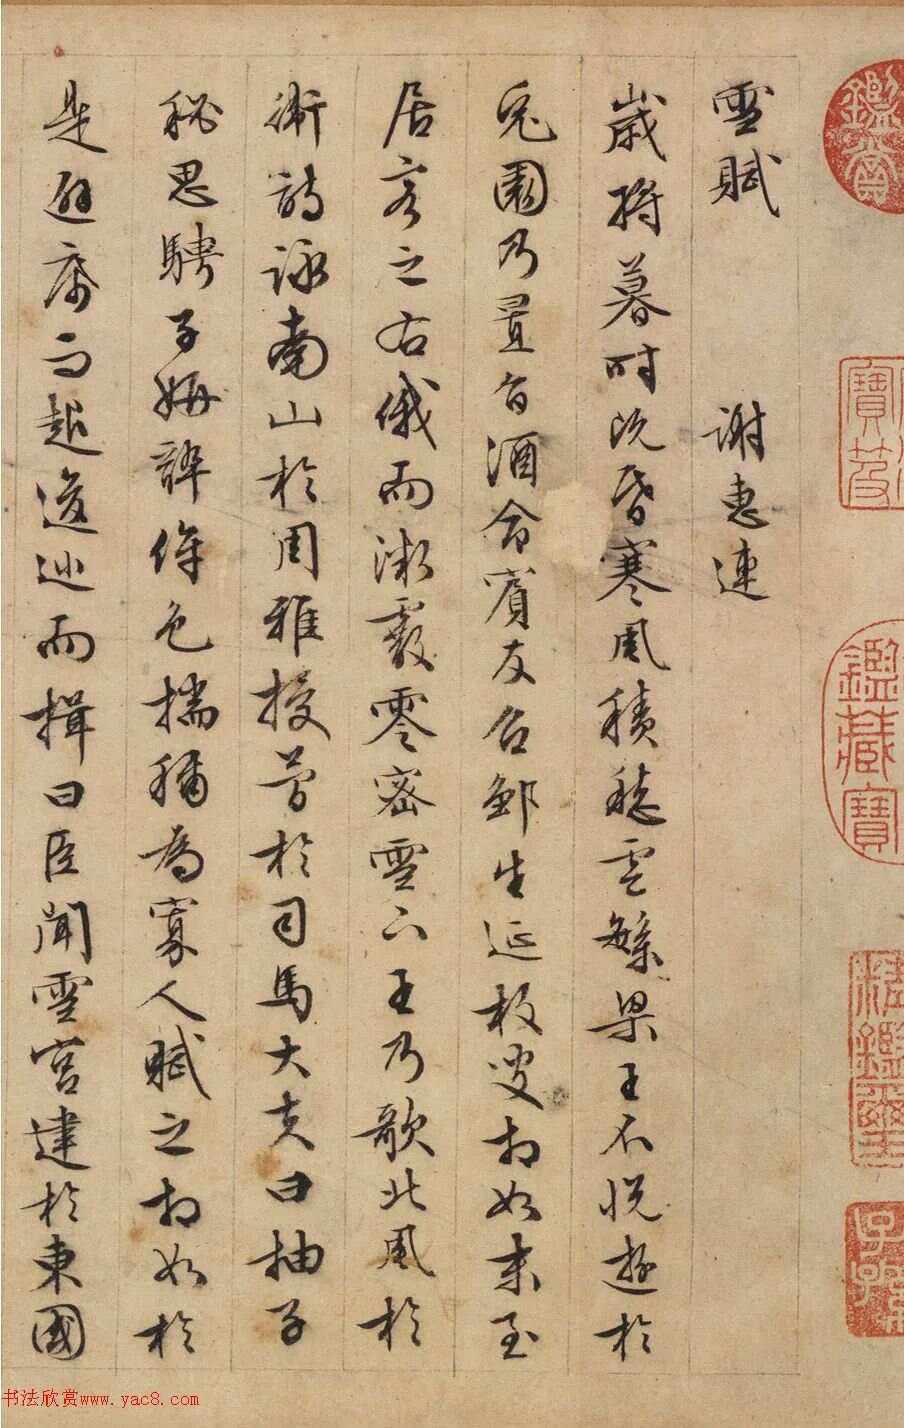 鑑賞
寶笈
鑑藏寶
精鑑璽
子孫
雪賦 謝惠連
歲將暮時既昏寒風積愁雲繁梁王不悅遊於
兔園乃置旨酒命賓友召鄒生延枚叟相如末至
居客之右俄而微霰零密雪下王乃歌北風於
衛詩詠南山於周雅授簡於司馬大夫曰抽子
秘思騁子妍辭侔色揣稱為寡人賦之相如於
是避席而起逡巡而揖曰臣聞雪宮建於東國
书法欣赏www.yac8.com